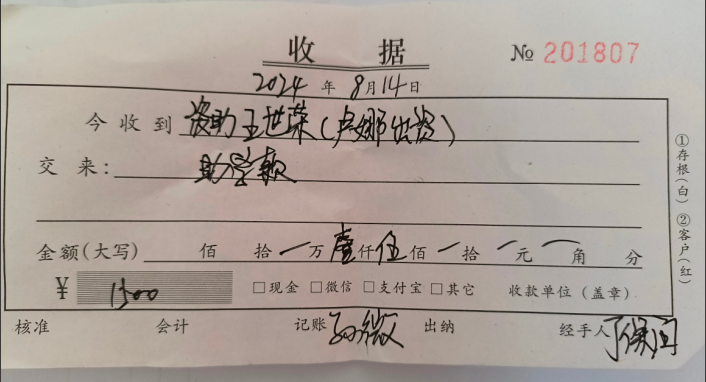 收 据
№ 201807
2024 年 8 月 14 日
今 收 到 资助王世荣(卢娜出资)
交 来: 助学款
金额(大写) 佰 拾 一 万 壹 仟 伍 佰 一 拾 一 元 一 角 分
¥ 1500 □现金 □微信 □支付宝 □其它 收款单位(盖章)
核准 会计 记账 孙薇 出纳 经手人
①存根(白) ②客户(红)